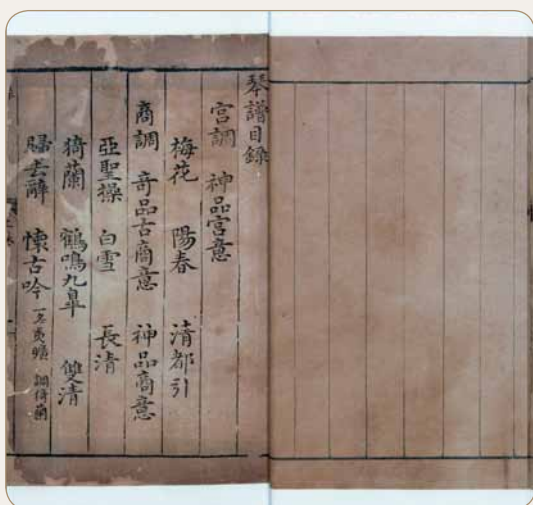 琴譜目錄
宮調 神品宮意
梅花 陽春 清都引
商調 奇品古商意 神品商意
亞聖操 白雪 長清
猗蘭 鶴鳴九臯 雙清
歸去辭 懷古吟 一名 調猗蘭